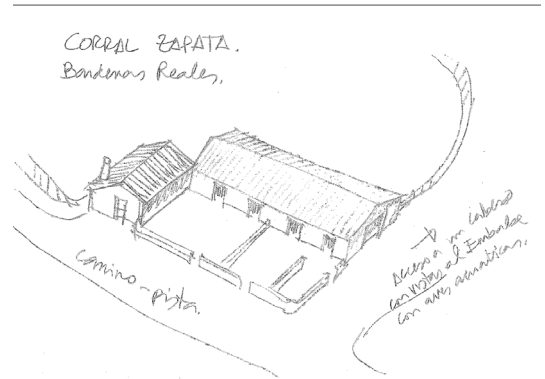 CORRAL ZAPATA.
Bardenas Reales,
camino-pista.
Acceso a un cabezo
con vistas al Embalse
con aves acuáticas.